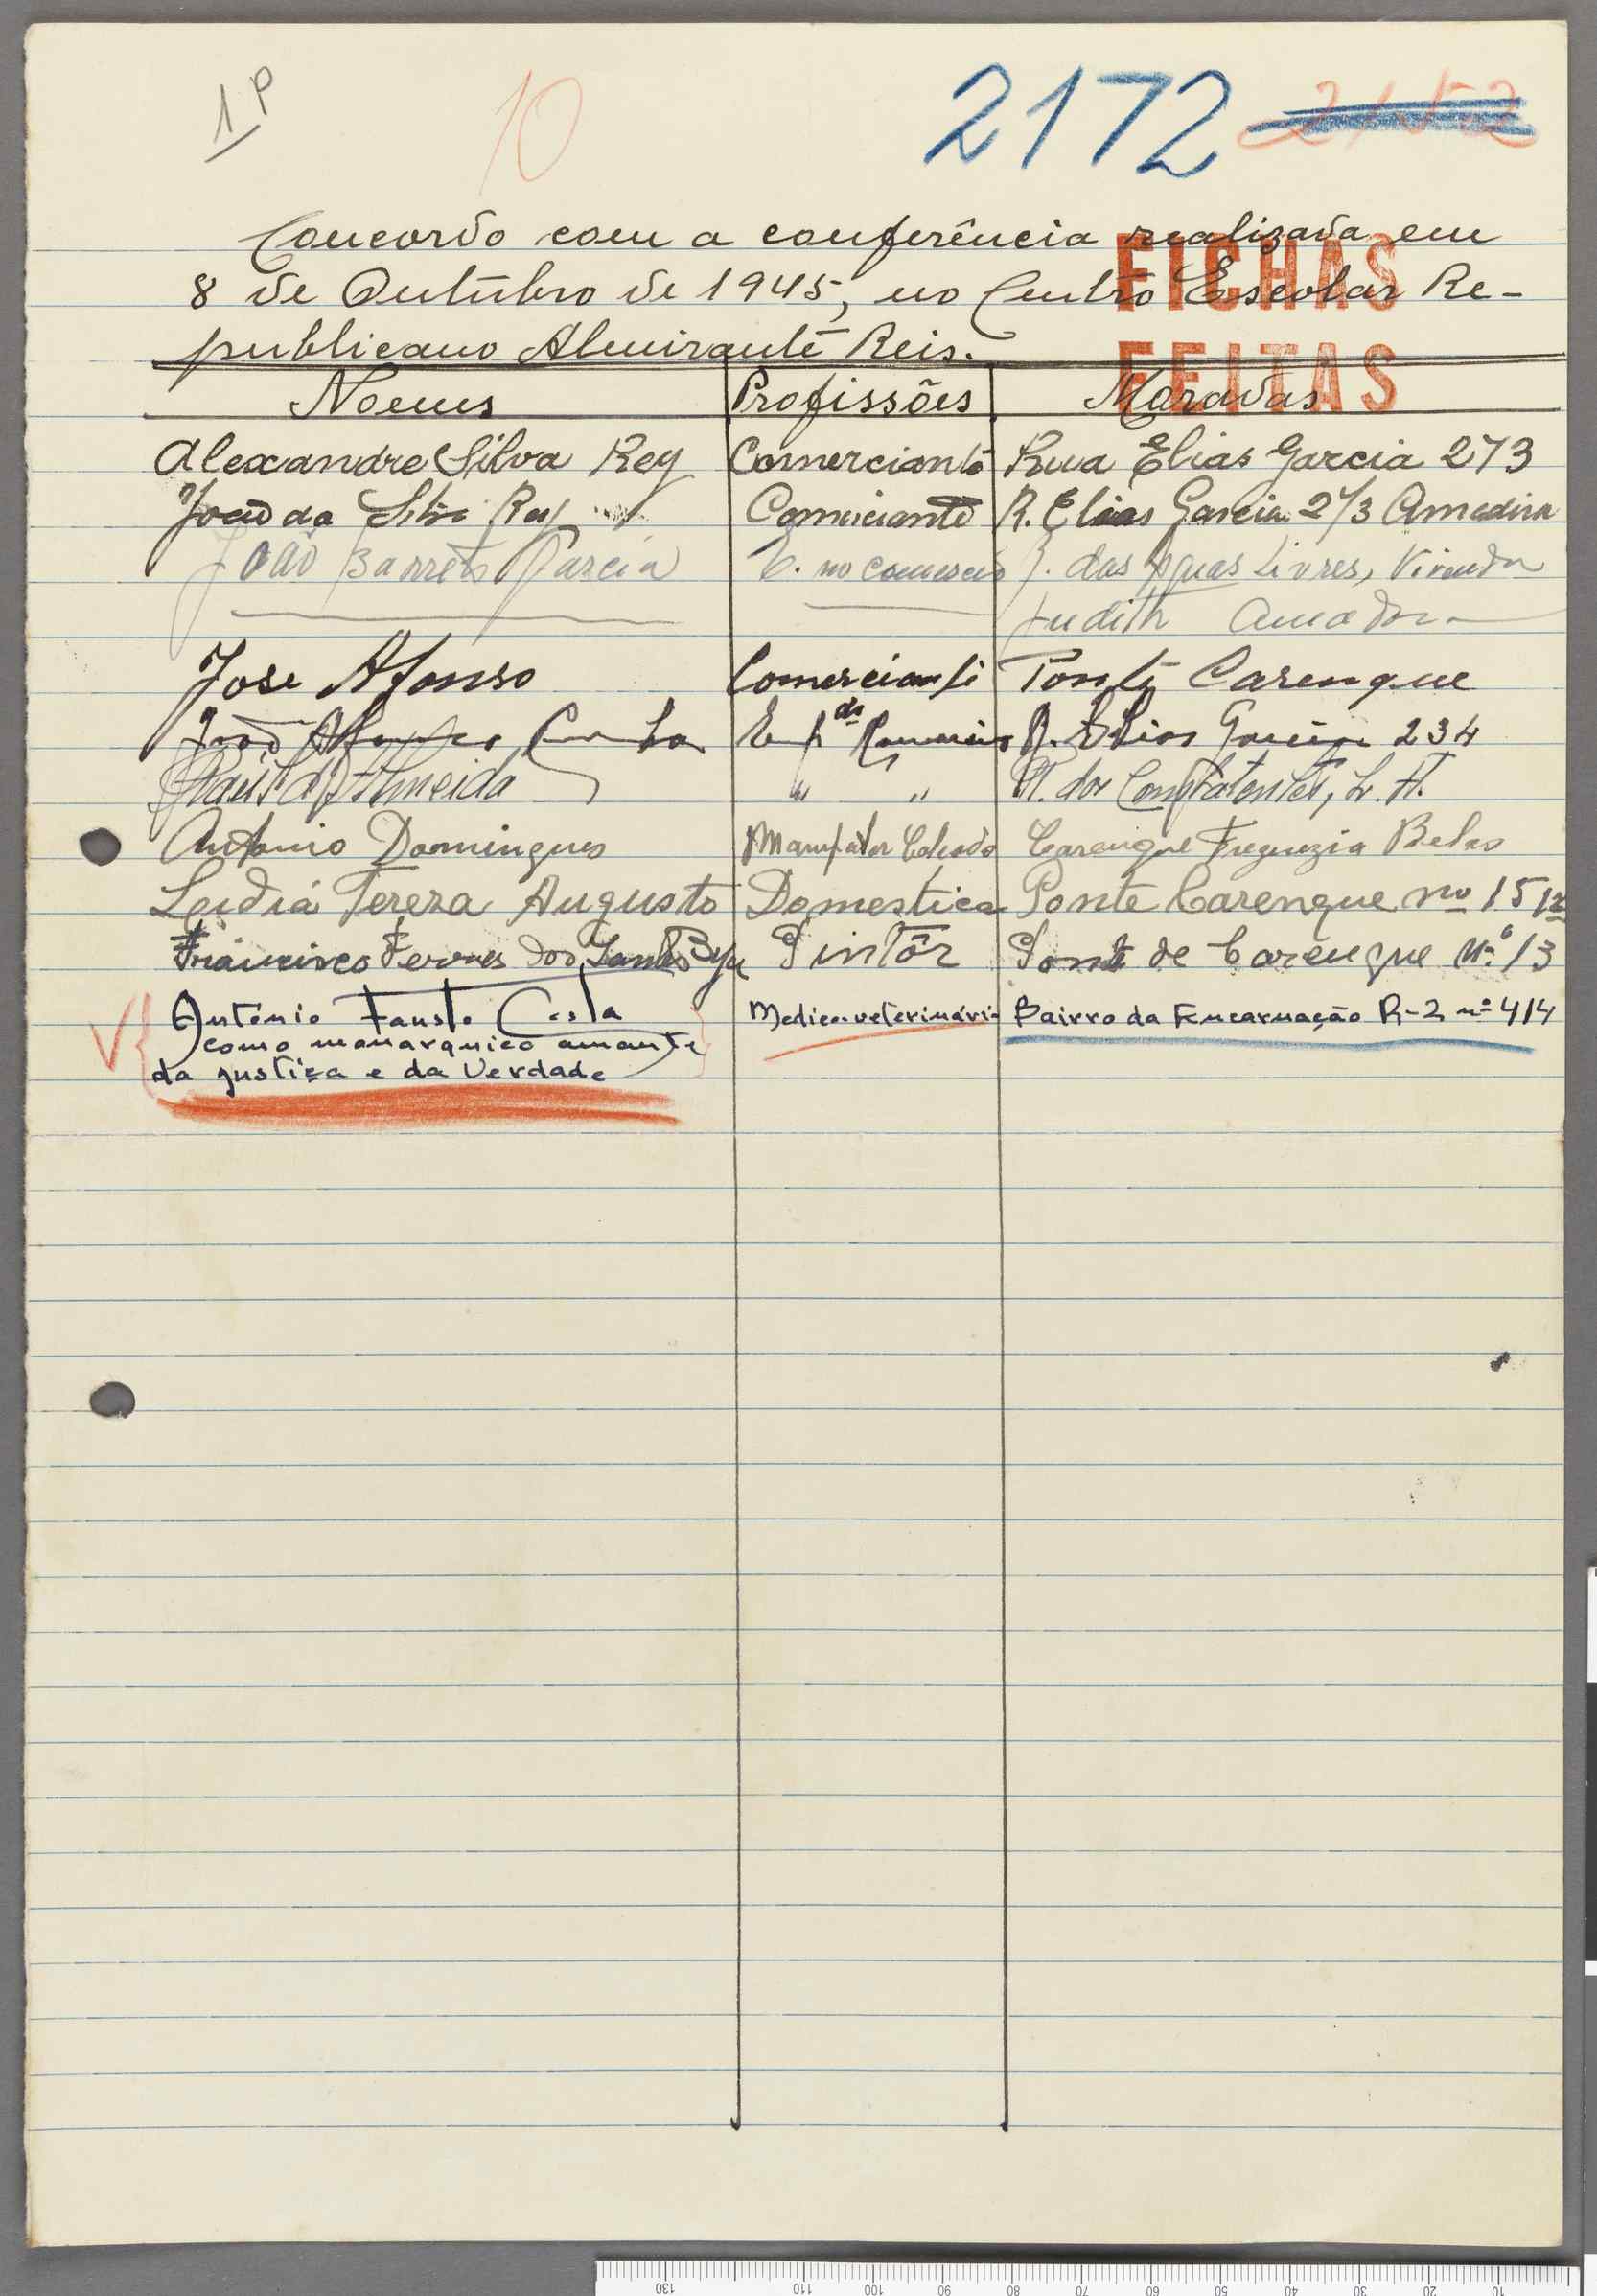 1P
10
2172
Concordo com a conferência realizada em
8 de Outúbro de 1945, no Centro Escolar Re-
publicano Almirante Reis.
FICHAS
FEITAS
Nomes Profissões Moradas
Alexandre Silva Rey Comerciante Rua Elias Garcia 273
João da Silva Rey Comerciante R. Elias Garcia 273 Amadora
João Barreto Garcia E. no comercio das Aguas Livres, Vivenda
Judith Amadora
Jose Afonso Comerciante Ponte Carenque
João R. Elias Garcia 234
d'Almeida " " dos Combatentes,
Antonio Domingues Calçado Carenque Freguezia Belas
Leidia Tereza Augusto Domestica Ponte Carenque no 15
Francisco dos Santos Pintôr Ponte de Carenque N.º 13
António Fausto Costa Medico-veterinário Bairro da Encarnação R-2 nº 414
como monarquico amante
da justiça e da Verdade
130 110 100 90 80 70 60 50 40 30 20 10